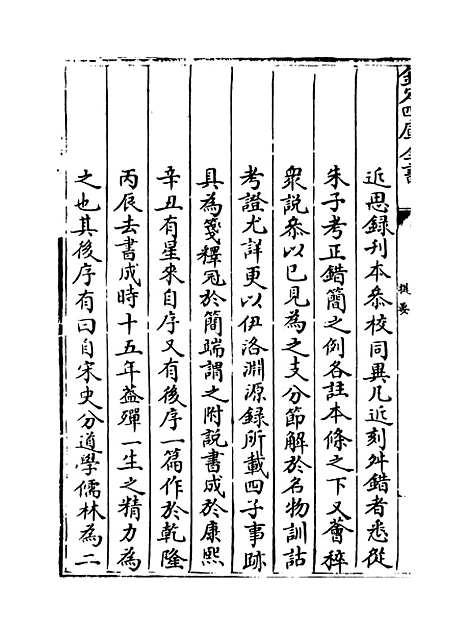 欽定四庫全書
提要
近思録刋本叅校同異凡近刻舛錯者悉從
朱子考正錯簡之例各註本條之下又薈稡
衆説叅以已見為之支分節解於名物訓詁
考證尤詳更以伊洛淵源録所載四子事跡
具為箋釋冠於簡端謂之附説書成於康熙
辛丑有星來自序又有後序一篇作於乾隆
丙辰去書成時十五年葢殫一生之精力為
之也其後序有曰自宋史分道學儒林為二